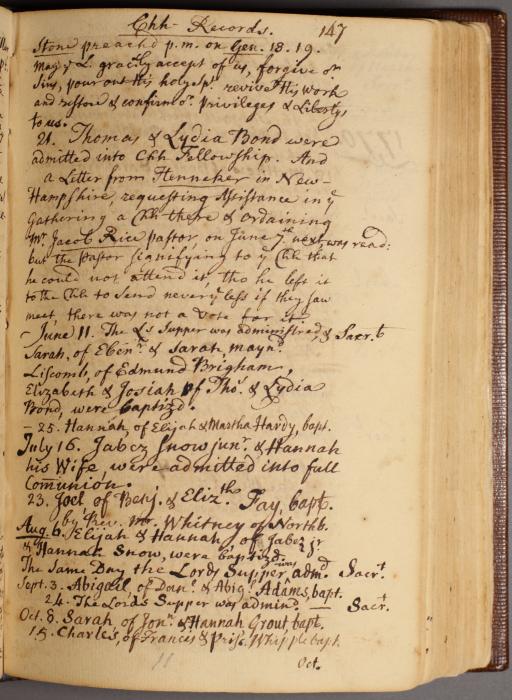 Chh Records. 147
Stone preach'd p.m. on Gen. 18. 19.
May ye L. gracily accept of us, forgive or
Sins, pour out His holy Spt. revive His Work
and restore & confirm or. Privileges & Libertys
to us.
21. Thomas & Lydia Bond were
admitted into Chh Fellowship. And
a Letter from Henneker in New-
Hampshire, requesting Assistance in ye
Gathering a Chh there & Ordaining
Mr. Jacob Rice Pastor, on June 7th next, was read:
but the Pastor signifying to ye Chh that
he could not attend it, tho he left it
to the Chh to send neverye less if they saw
meet, there was not a Vote for it.
- June 11. The Ls Supper was administred, & Sacr.t
Sarah, of Ebenr. & Sarah maynd.
Liscomb, of Edmund Brigham,
Elizabeth & Josiah of Tho. & Lydia
Bond, were baptizd.
- 25. Hannah, of Elijah & Martha Hardy, bapt.
July 16. Jabez Snow junr. & Hannah
his Wife, were admitted into full
Communion.
23. Joel of Benj. & Eliz.th Fay, bapt.
by Rev. Mr. Whitney of Northb.
Aug. 6. Elijah & Hannah of Jabez jr
& Hannah Snow, were baptizd.
The Same Day the Lords Supper was admd. Sacr.t
Sept. 3. Abigail of Danl. & Abig. Adams, bapt.
24. The Lords Supper was adminid — Sacr.t
Oct. 8. Sarah of Jonn. & Hannah Grout bapt.
15. Charles, of Francis & Prisc. Whipple bapt.
Oct.